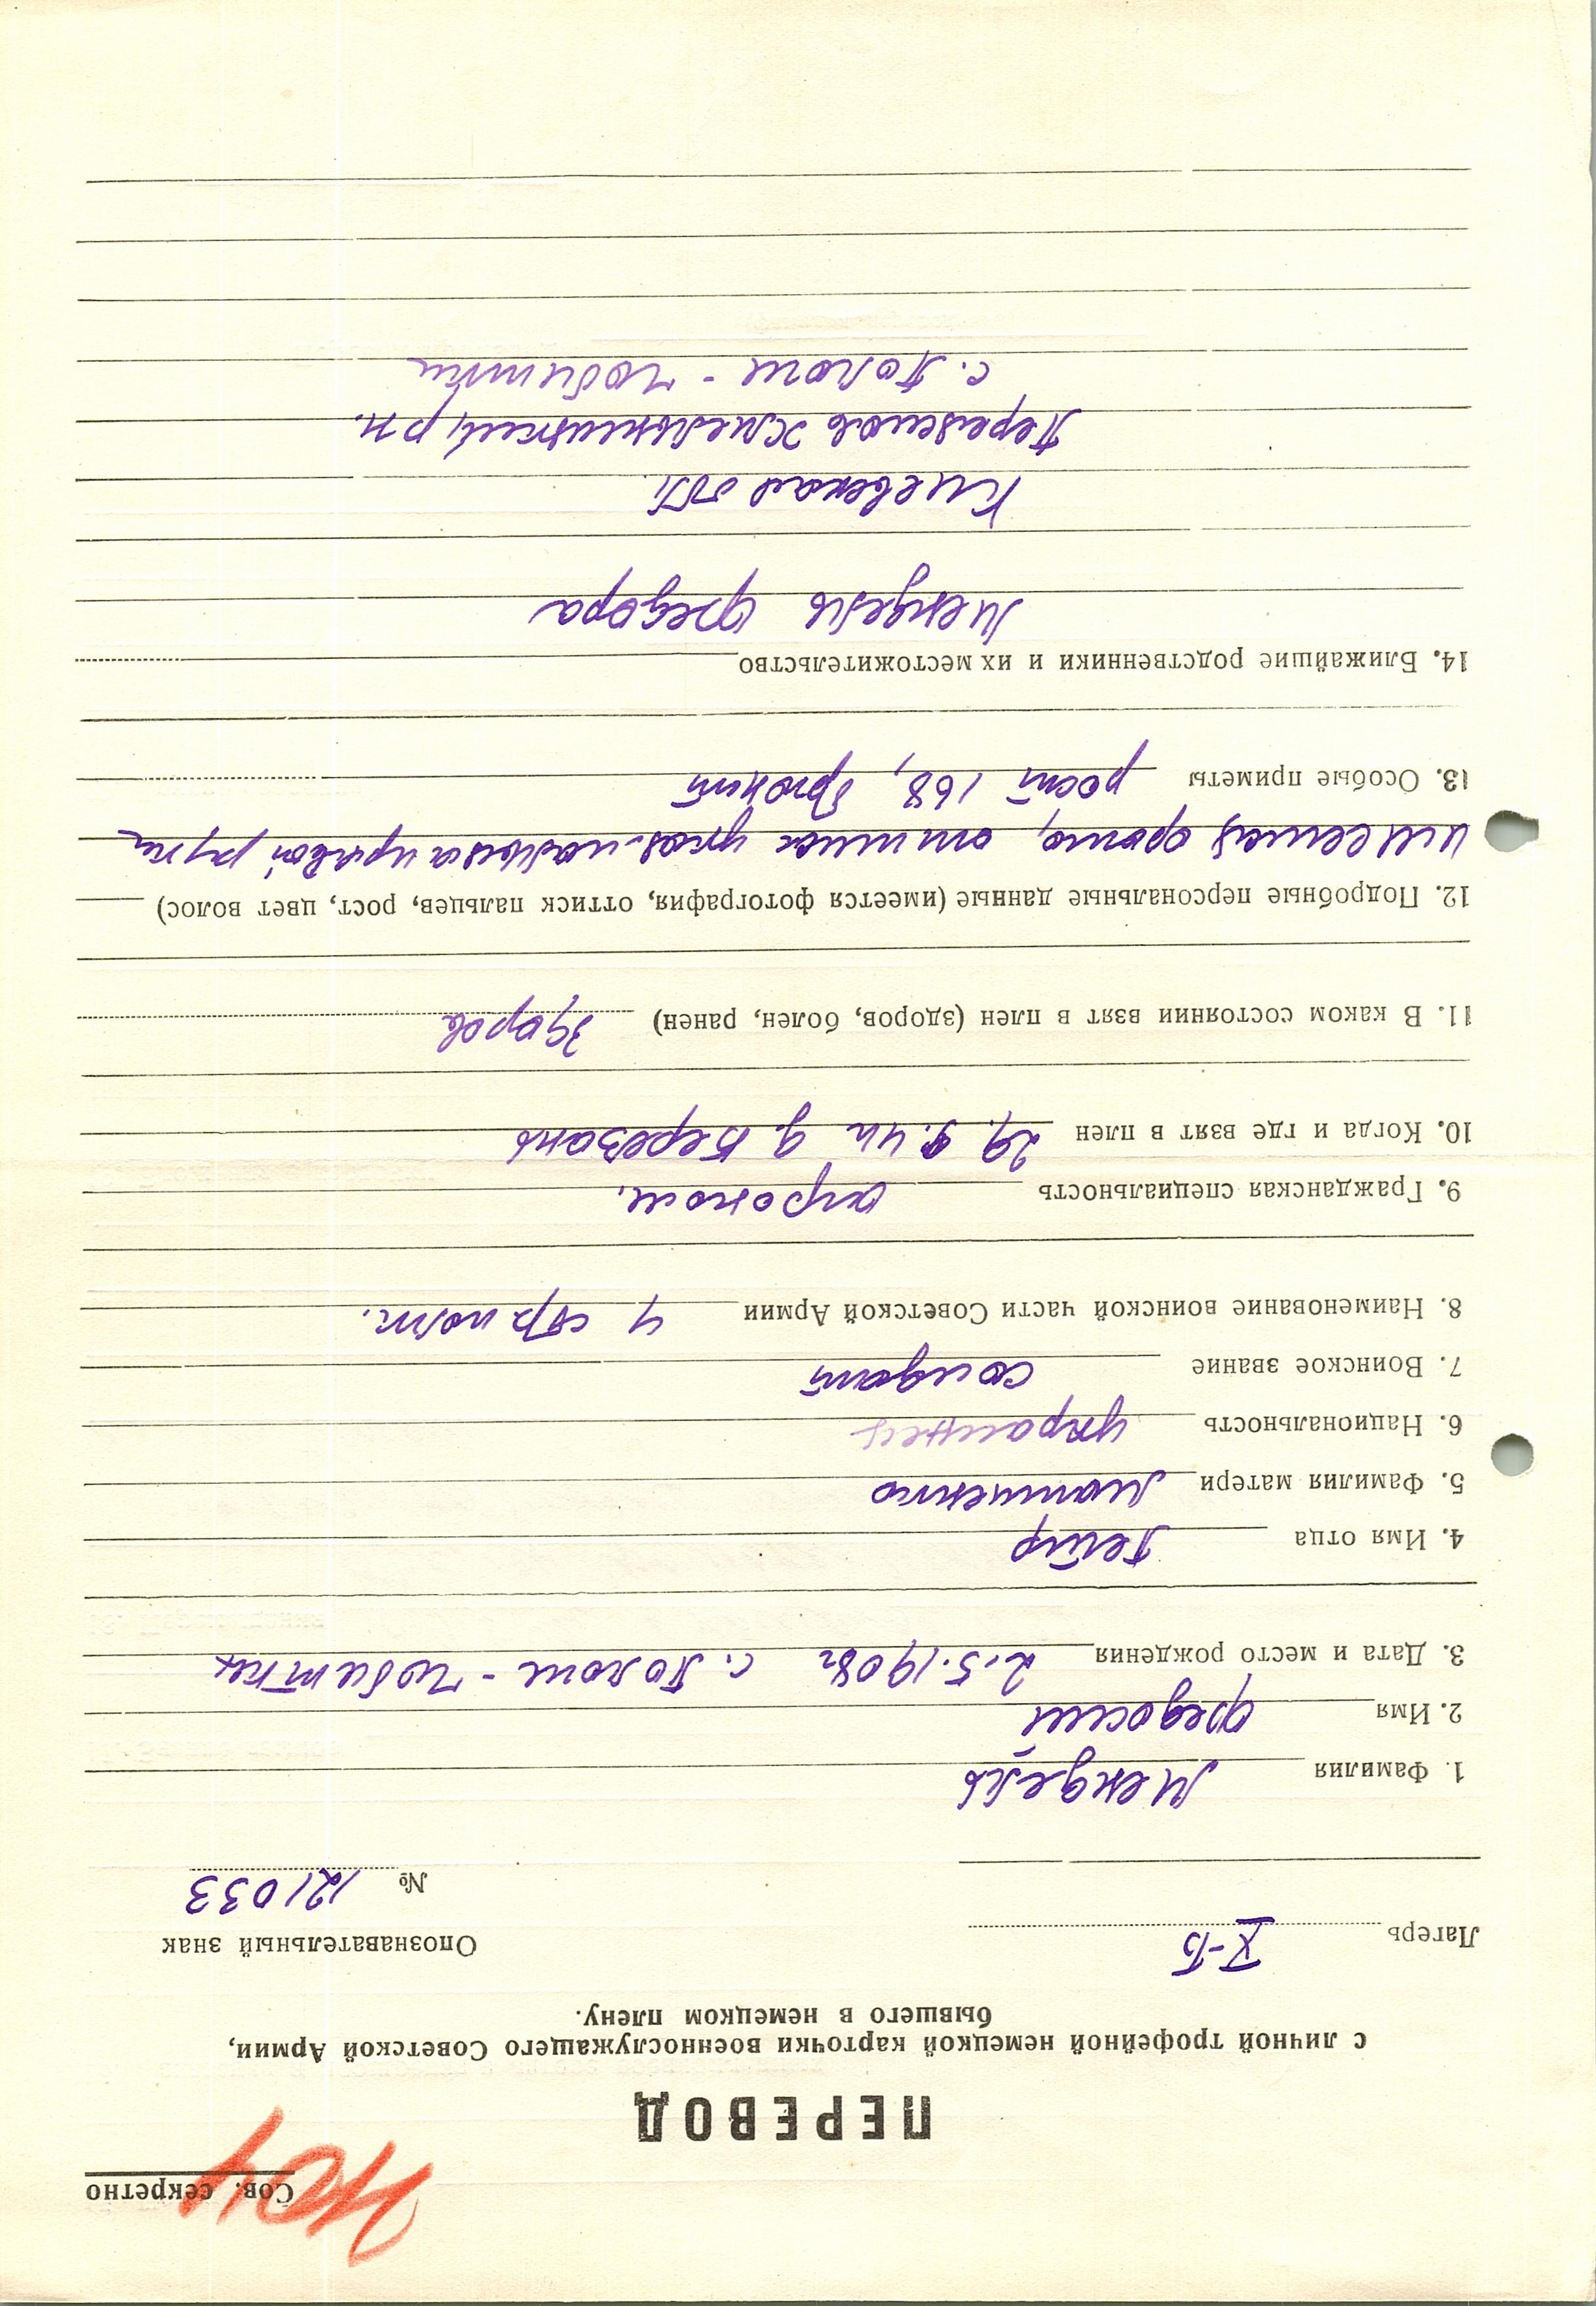 Сов. секретно
ПЕРЕВОД
с личной трофейной немецкой карточки военнослужащего Советской Армии,
бывшего в немецком плену.
Лагерь X-Б
Опознавательный знак
№ 121033
1. Фамилия Мендель
2. Имя Федосий
3. Дата и место рождения 2.5.1908г с. Пологи-Чобитки
4. Имя отца Петр
5. Фамилия матери
6. Национальность украинец
7. Воинское звание солдат
8. Наименование воинской части Советской Армии 4 стр полк.
9. Гражданская специальность агроном.
10. Когда и где взят в плен 29. 9. 41г д. Березань
11. В каком состоянии взят в плен (здоров, болен, ранен) здоров
12. Подробные персональные данные (имеется фотография, оттиск пальцев, рост, цвет волос)
имеется фото, оттиск указ. пальца правой руки
13. Особые приметы рост 168, брюнет
14. Ближайшие родственники и их местожительство
Мендель Федора
Киевская обл.
Переяслов Хмельницкий р-н.
с. Пологи-Чобитки